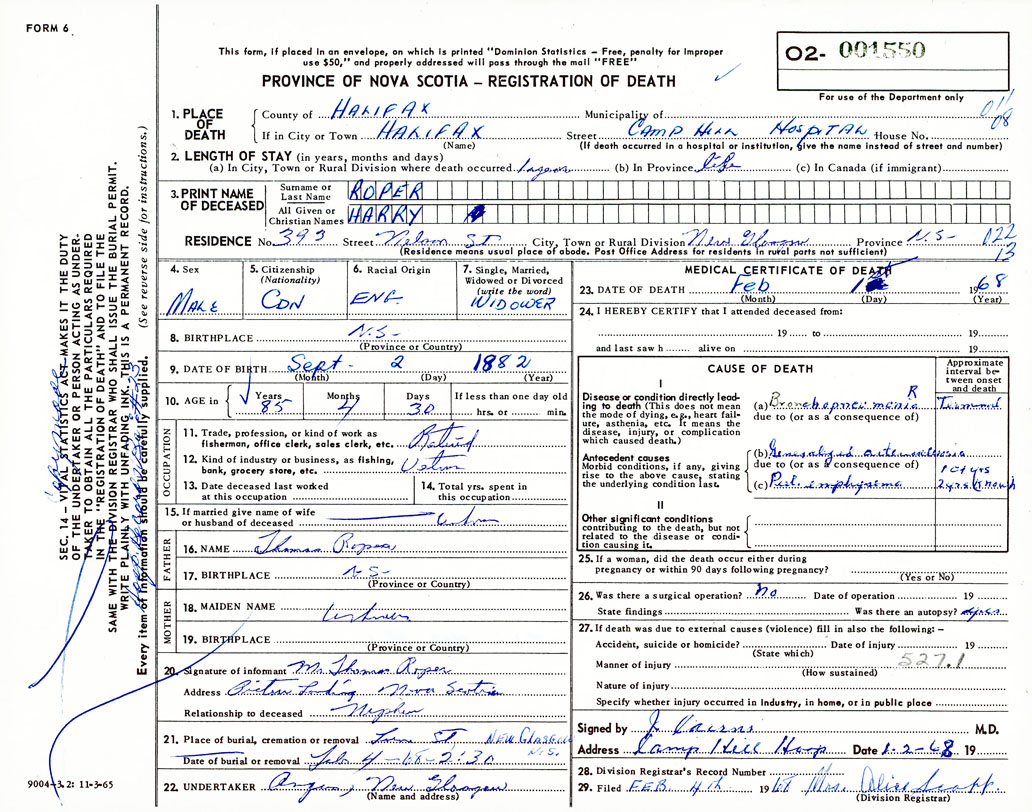 FORM 6
This form, if placed in an envelope, on which is printed "Dominion Statistics – Free, penalty for improper
use $50," and properly addressed will pass through the mail "FREE"
PROVINCE OF NOVA SCOTIA – REGISTRATION OF DEATH
O2- 001550
For use of the Department only
1. PLACE OF DEATH
County of HALIFAX Municipality of
If in City or Town HALIFAX Street CAMP HILL HOSPITAL House No.
(Name) (If death occurred in a hospital or institution, give the name instead of street and number)
011
08
2. LENGTH OF STAY (in years, months and days)
(a) In City, Town or Rural Division where death occurred (b) In Province life (c) In Canada (if immigrant)
3. PRINT NAME OF DECEASED
Surname or Last Name ROPER
All Given or Christian Names HARRY
RESIDENCE No. 393 Street Nelson St City, Town or Rural Division New Glasgow Province N.S-
(Residence means usual place of abode. Post Office Address for residents in rural parts not sufficient)
122
13
4. Sex MALE
5. Citizenship (Nationality) CDN
6. Racial Origin ENG.
7. Single, Married, Widowed or Divorced (write the word) WIDOWER
8. BIRTHPLACE N.S-
(Province or Country)
9. DATE OF BIRTH Sept- 2 1882
(Month) (Day) (Year)
10. AGE in Years 85 Months 4 Days 30 If less than one day old hrs. or min.
OCCUPATION
11. Trade, profession, or kind of work as
fisherman, office clerk, sales clerk, etc. Retired
12. Kind of industry or business, as fishing,
bank, grocery store, etc.
13. Date deceased last worked
at this occupation
14. Total yrs. spent in
this occupation
15. If married give name of wife
or husband of deceased
FATHER
16. NAME Thomas Roper
17. BIRTHPLACE N-S-
(Province or Country)
MOTHER
18. MAIDEN NAME
19. BIRTHPLACE
(Province or Country)
20. Signature of informant Mr Thomas Roper
Address Pictou Landing Nova Scotia
Relationship to deceased Nephew
21. Place of burial, cremation or removal NEW GLASGOW N.S.
Date of burial or removal Feb 4 -68-2:30
22. UNDERTAKER New Glasgow
(Name and address)
MEDICAL CERTIFICATE OF DEATH
23. DATE OF DEATH Feb 1 1968
(Month) (Day) (Year)
24. I HEREBY CERTIFY that I attended deceased from:
19 to 19
and last saw h alive on 19
CAUSE OF DEATH
Approximate interval between onset and death
I
Disease or condition directly lead-
ing to death (This does not mean
the mode of dying, e.g., heart fail-
ure, asthenia, etc. It means the
disease, injury, or complication
which caused death.)
(a) Bronchopneumonia R Terminal
due to (or as a consequence of)
Antecedent causes
Morbid conditions, if any, giving
rise to the above cause, stating
the underlying condition last.
(b) Generalized arteriosclerosis 10+ yrs
due to (or as a consequence of)
(c) Pul. emphysema 2 yrs
II
Other significant conditions
contributing to the death, but not
related to the disease or condi-
tion causing it.
25. If a woman, did the death occur either during
pregnancy or within 90 days following pregnancy?
(Yes or No)
26. Was there a surgical operation? No Date of operation 19
State findings Was there an autopsy?
27. If death was due to external causes (violence) fill in also the following: –
Accident, suicide or homicide? Date of injury 19
(State which)
Manner of injury 527.1
(How sustained)
Nature of injury
Specify whether injury occurred in industry, in home, or in public place
Signed by M.D.
Address Camp Hill Hosp Date 1-2-68 19
28. Division Registrar's Record Number
29. Filed FEB. 4th 1968 Mrs. Alice Scott
(Division Registrar)
SEC. 14 – VITAL STATISTICS ACT–MAKES IT THE DUTY
OF THE UNDERTAKER OR PERSON ACTING AS UNDER-
TAKER TO OBTAIN ALL THE PARTICULARS REQUIRED
IN THE "REGISTRATION OF DEATH" AND TO FILE THE
SAME WITH THE DIVISION REGISTRAR WHO SHALL ISSUE THE BURIAL PERMIT.
WRITE PLAINLY WITH UNFADING INK. THIS IS A PERMANENT RECORD.
Every item of information should be carefully supplied. (See reverse side for instructions.)
9004-3.2: 11-3-65